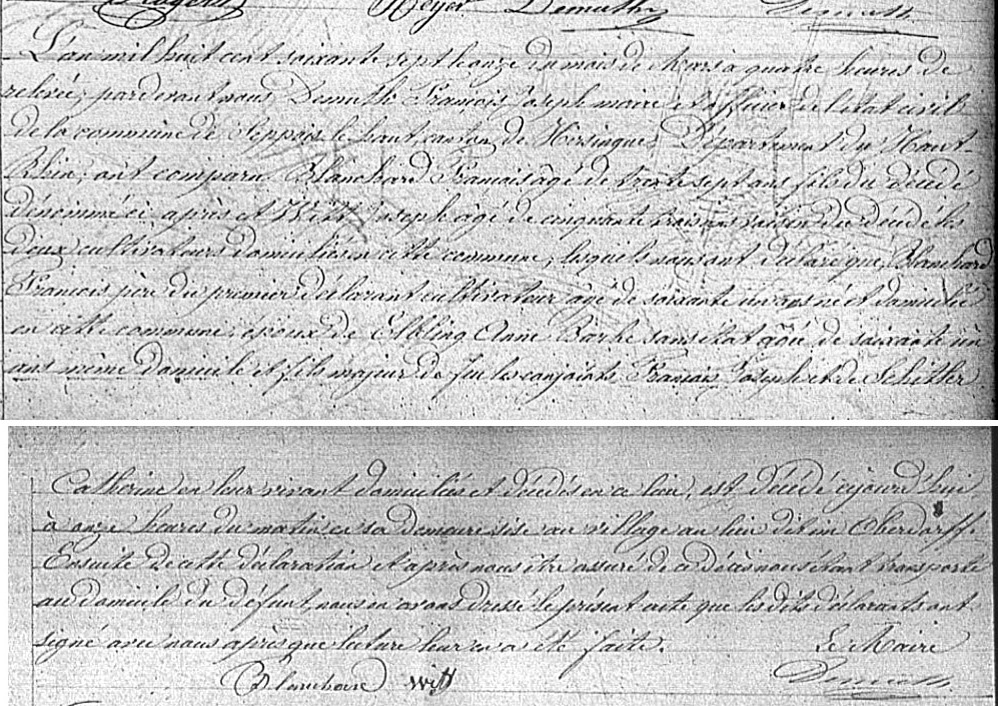 Meyer Demuth Demuth
L'an mil huit cent soixante sept le onze du mois de Mars à quatre heures de
relevée, par devant nous Demuth François Joseph maire et officier de l'état civil
de la commune de Seppois le haut, canton de Hirsingue, Département du Haut-
Rhin, ont comparu Blanchard François agé de trente sept ans fils du décédé
dénommé ci après et Witt Joseph âgé de cinquante trois ans voisin du décédé les
deux cultivateurs domiciliés en cette commune, lesquels nous ont déclaré que, Blanchard
François père du premier déclarant cultivateur âgé de soixante un ans né et domicilié
en cette commune, époux de Elbling Anne Barbe sans état agée de soixante un
ans même domicile et fils majeur de feu les conjoints François Joseph et de Schitter
Catherine en leur vivant domiciliés et décédés en ce lieu, est décédé cejourd'hui
à onze heures du matin en sa demeure sise au village au lieu dit im Oberdorff.
Ensuite de cette déclaration et après nous être assuré de ce décès nous étant transporté
au domicile du défunt, nous en avons dressé le présent acte que les dits déclarants ont
signé avec nous après que lecture leur en a été faite. Le Maire
Blanchard Witt Demuth